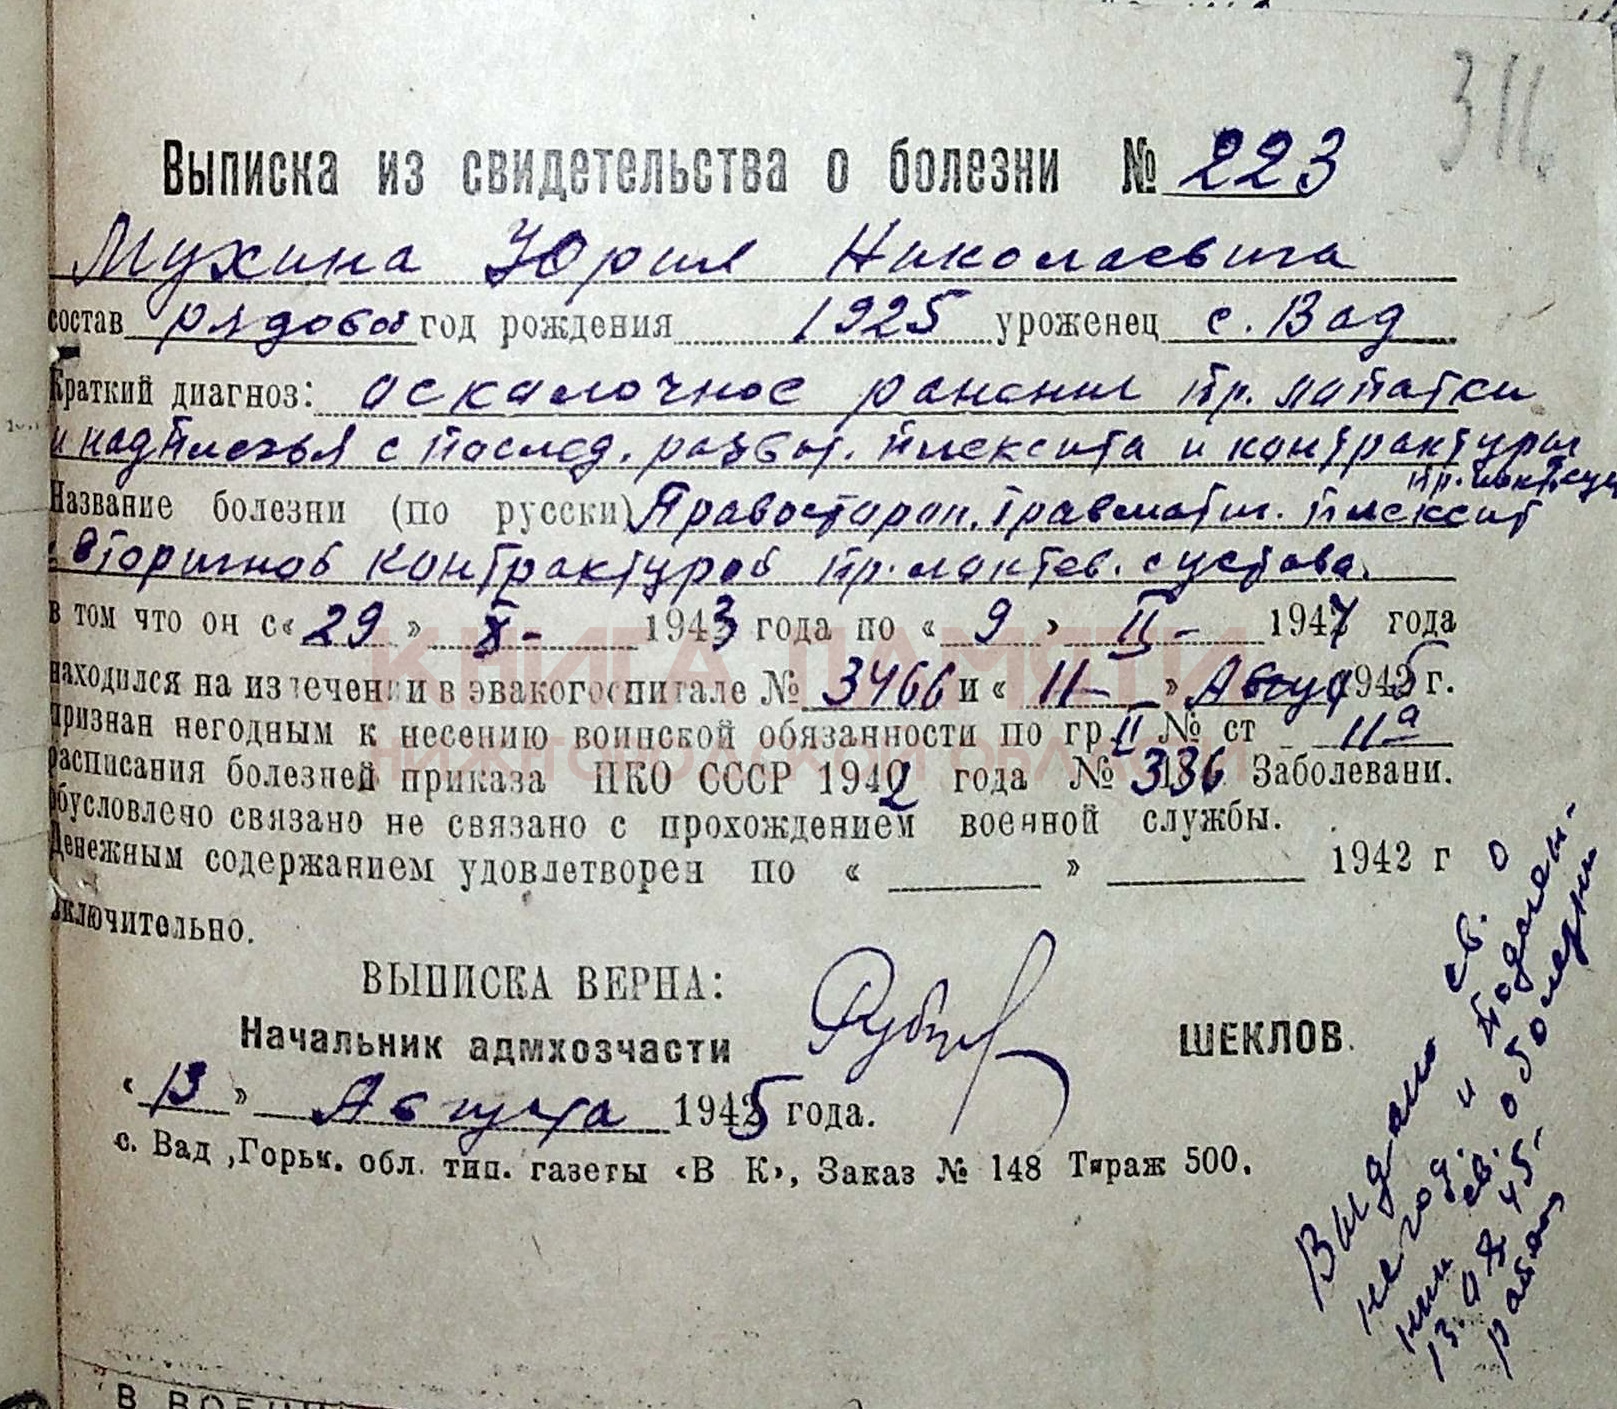 311.
Выписка из свидетельства о болезни № 223
Мухина Юрия Николаевича
состав рядовой год рождения 1925 уроженец с. Вад
Краткий диагноз: оскалочное ранение пр. лопатки
и надплечья с послед. развит. плексита и контрактуры
пр. локт. суст
Название болезни (по русски) Правосторон. травматич. плексит
с вторичной контрактурой пр. локтев. сустава.
в том что он с «29» X- 1943 года по «9» II- 1947 года
находился на излечении в эвакогоспитале № 3466 и «11-» Август 1945 г.
признан негодным к несению воинской обязанности по гр II № ст 11а
расписания болезней приказа НКО СССР 1942 года № 336 Заболевани.
обусловлено связано не связано с прохождением военной службы.
Денежным содержанием удовлетворен по « » 1942 г
включительно.
ВЫПИСКА ВЕРНА:
Начальник адмхозчасти ШЕКЛОВ.
«13» Августа 1945 года.
с. Вад ,Горьк. обл. тип. газеты «В К», Заказ № 148 Тираж 500.
Выдано св. о
негод. и подлен-
нии св. о болезни
КНИГА ПАМЯТИ
НИЖЕГОРОДСКОЙ ОБЛАСТИ